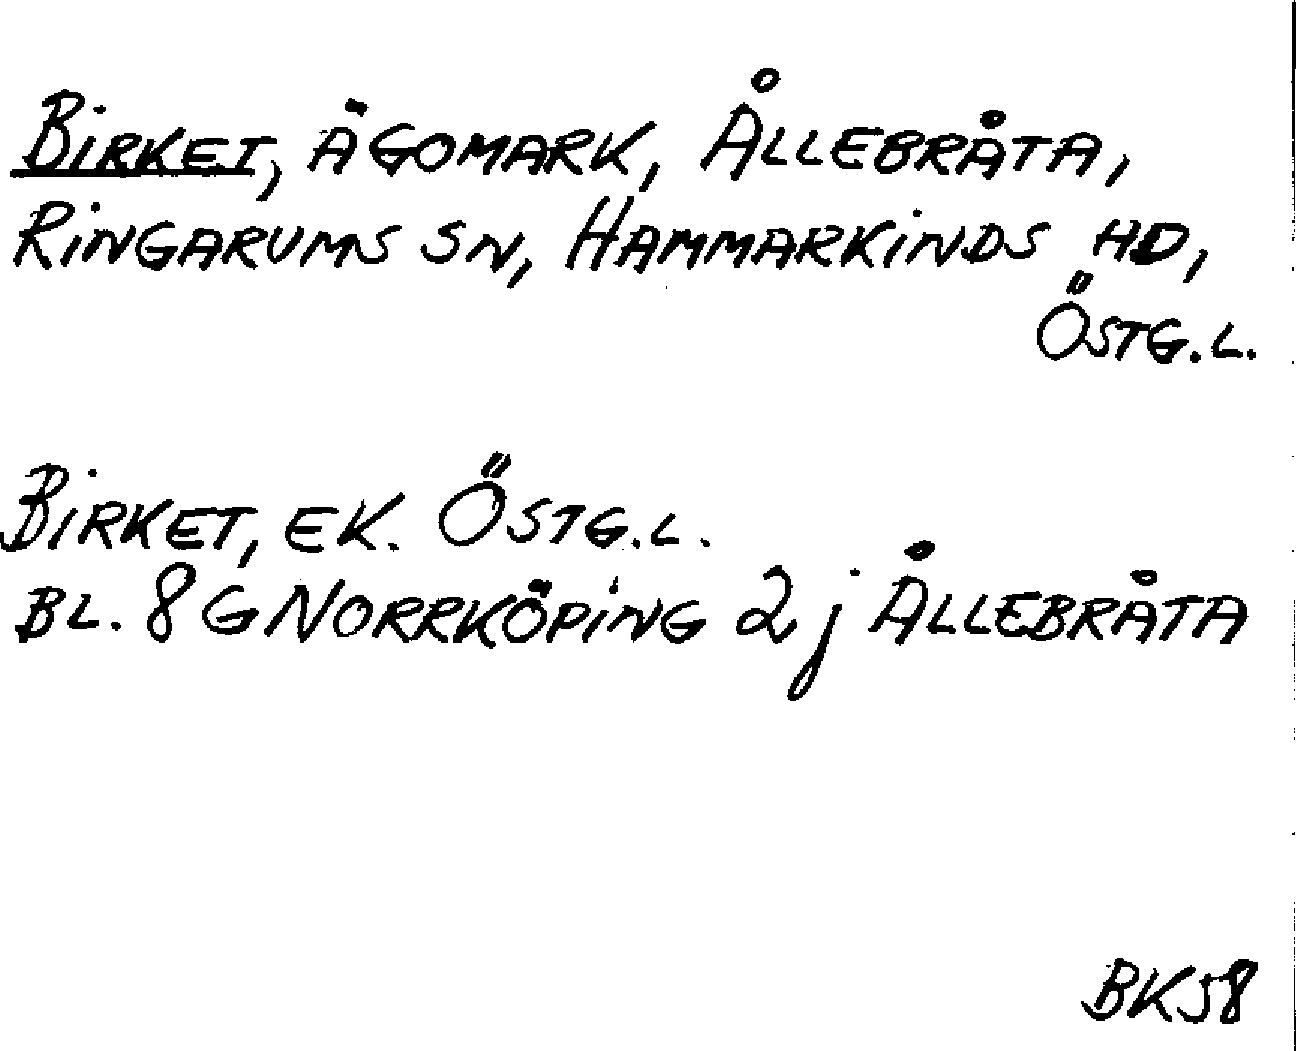 BIRKET, ÄGOMARK, ÅLLEBRÅTA,
RINGARUMS SN, HAMMARKINDS HD,
ÖSTG.L.
BIRKET, EK. ÖSTG.L.
BL. 8G NORRKÖPING 2j ÅLLEBRÅTA
BK58